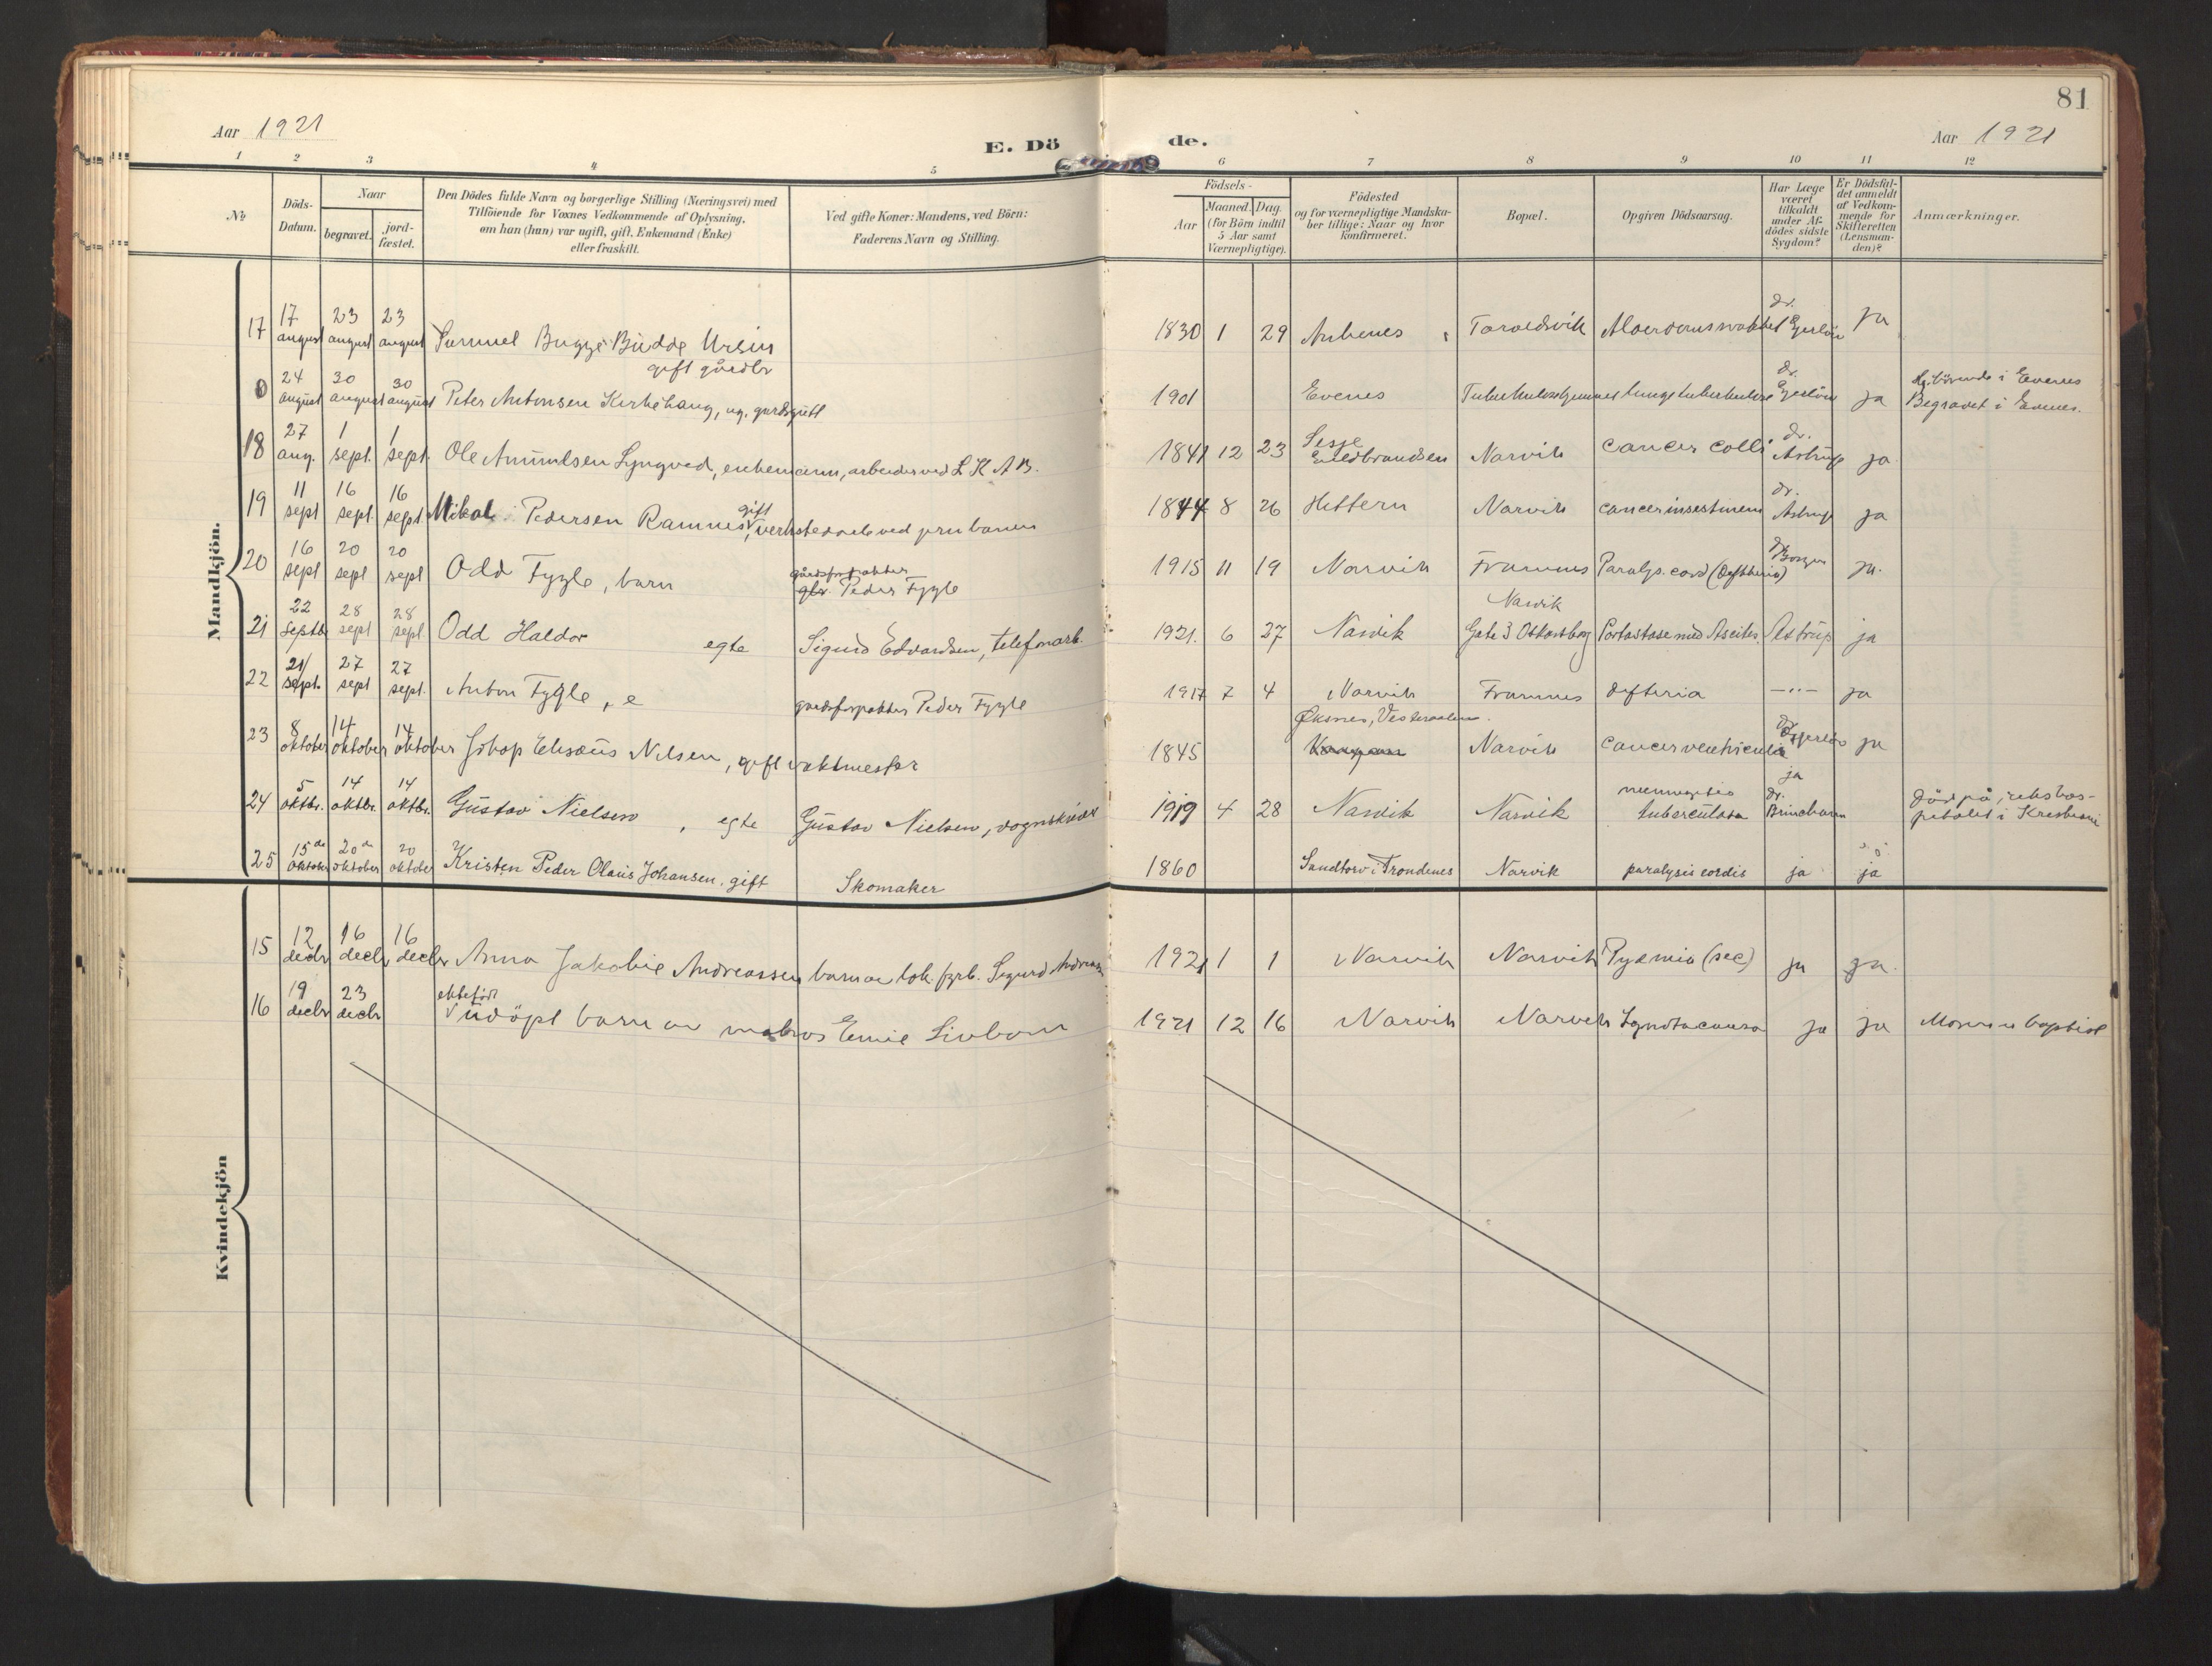 81
Aar 1921
E. Dö de.
Aar 1921
1 2 3 4 5 6 7 8 9 10 11 12
No
Döds-Datum.
Naar
begravet. jord-fæstet.
Den Dödes fulde Navn og borgerlige Stilling (Næringsvei) med
Tilföiende for Voxnes Vedkommende af Oplysning,
om han (hun) var ugift, gift, Enkemand (Enke)
eller fraskilt.
Ved gifte Koner: Mandens, ved Börn:
Faderens Navn og Stilling.
Födsels-
Aar
Maaned. Dag.
(for Börn indtil
5 Aar samt
Værnepligtige).
Födested
og for værnepligtige Mandska-
ber tillige: Naar og hvor
konfirmeret.
Bopæl.
Opgiven Dödsaarsag.
Har Læge
været
tilkaldt
under Af-
dödes sidste
Sygdom?
Er Dödsfal-
det anmeldt
af Vedkom-
mende for
Skifteretten
(Lensman-
den)?
Anmærkninger.
Mandkjön.
17 17 august 23 august 23 august Samuel Bugge Budde Ursin 1830 1 29 Taraldsvik dr. ja
gift gårdbr
0 24 august 30 august 30 august Peter Antonsen Kirkehaug, ug. gårdsgutt 1901 Evenes Tuberkulosehjemmet Lungetuberkulose dr. ja
Hj.hörende i Evenes
Begravet i Evenes.
18 27 aug. 1 sept. 1 sept. Ole Amundsen Lyngved, enkemann, arbeider ved L K A B. 1841 12 23 Narvik cancer colli dr. Astrup ja
19 11 sept 16 sept. 16 sept Mikal Pedersen Ramnes, gift verkstedarb ved 1844 8 26 Hittern Narvik cancer dr. Astrup ja
20 16 sept 20 sept 20 sept Odd Fygle, barn gårdsforpakter gbr. Peder Fygle 1915 11 19 Narvik Framnes Paralys. cord (Difteria) ja.
21 22 septbr 28 sept 28 sept Odd Haldor egte Sigurd Edvardsen, telefonarb. 1921. 6 27 Narvik Narvik Gate 3 Portastase med Ascites. Astrup ja
22 21/ sept. 27 sept 27 sept. Anton Fygle, e gaardsforpakter Peder Fygle 1917 7 4 Narvik Framnes difteria —"— ja
23 8 oktober 14 oktober 14 oktober Jakop Elisæus Nilsen, gift vaktmester 1845 Øksnes, Vesteraalen. Narvik cancer ventriculi dr. ja
24 5 oktbr. 14 oktbr. 14 oktbr. Gustav Nielsen, egte Gustav Nielsen, vognskriver 1919 4 28 Narvik Narvik meningitis tuberculosa ja dr. Brinchmann
Död på rikshos-
pitalet i Kristiania
25 15de oktober 20de oktober 20 oktober Kristen Peder Olaus Johansen, gift Skomaker 1860 Sandtorv i Trondenes Narvik paralysis cordis ja ja
Kvindekjön
15 12 decbr 16 decbr 16 decbr Anna Jakobie Andreassen barn av lok. fyrb. Sigurd Andreassen 1921 1 1 Narvik Narvik Pyæmia (sec) ja ja.
16 19 decbr 23 decbr ektefödt udöpt barn av matros Emil 1921 12 16 Narvik Narvik Ignota causa ja ja Moren er baptist